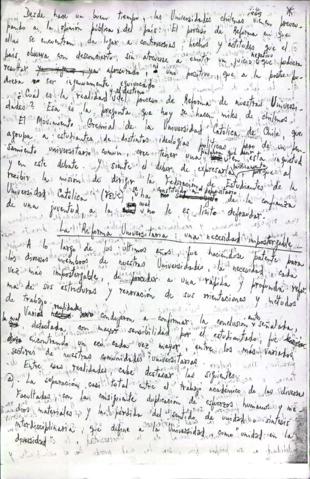 Desde hace un buen tiempo, las Universidades chilenas vienen preocu-
pando a la opinión pública del país. El proceso de Reforma en que
ellas se encuentran, da lugar a controversias, hechos y actitudes que el
país observa con desconcierto, sin atreverse a emitir un juicio que pudiera
ser apresurado, o positivo, que a la postre po-
dría no ser
¿Cuál es la realidad y el destino del proceso de Reforma de nuestras Universi-
dades? Esa es la pregunta que hoy se hacen miles de chilenos.
El Movimiento Gremial de la Universidad Católica de Chile, que
agrupa a estudiantes de distintas ideologías políticas pero de un pen-
samiento universitario común, cree tener una en esta inquietud
y en este debate. Y siente el deber de expresarla al
recibir la misión de dirigir la Federación de Estudiantes de la
Universidad Católica (FEUC) de la confianza
de una juventud a la cual no le es lícito defraudar.
La Reforma Universitaria, una necesidad impostergable
A lo largo de los últimos años, fue haciéndose patente para
los diversos miembros de nuestras Universidades, la necesidad cada
vez más impostergable, de proceder a una rápida y profunda refor-
ma de sus estructuras y renovación de sus orientaciones y métodos
de trabajo.
Varias realidades condujeron a confirmar la conclusión señalada,
la cual detectada, con mayor sensibilidad por el estudiantado, fue
encontrando un eco cada vez mayor, entre los más variados
sectores de nuestras comunidades universitarias.
Entre esas realidades, cabe destacar las siguientes:
a) La separación casi total entre el trabajo académico de las diversas
Facultades, con la consiguiente duplicación de esfuerzos humanos y me-
dios materiales, y la pérdida del sentido de unidad y síntesis
interdisciplinaria, que define a la Universidad como unidad en la
diversidad.